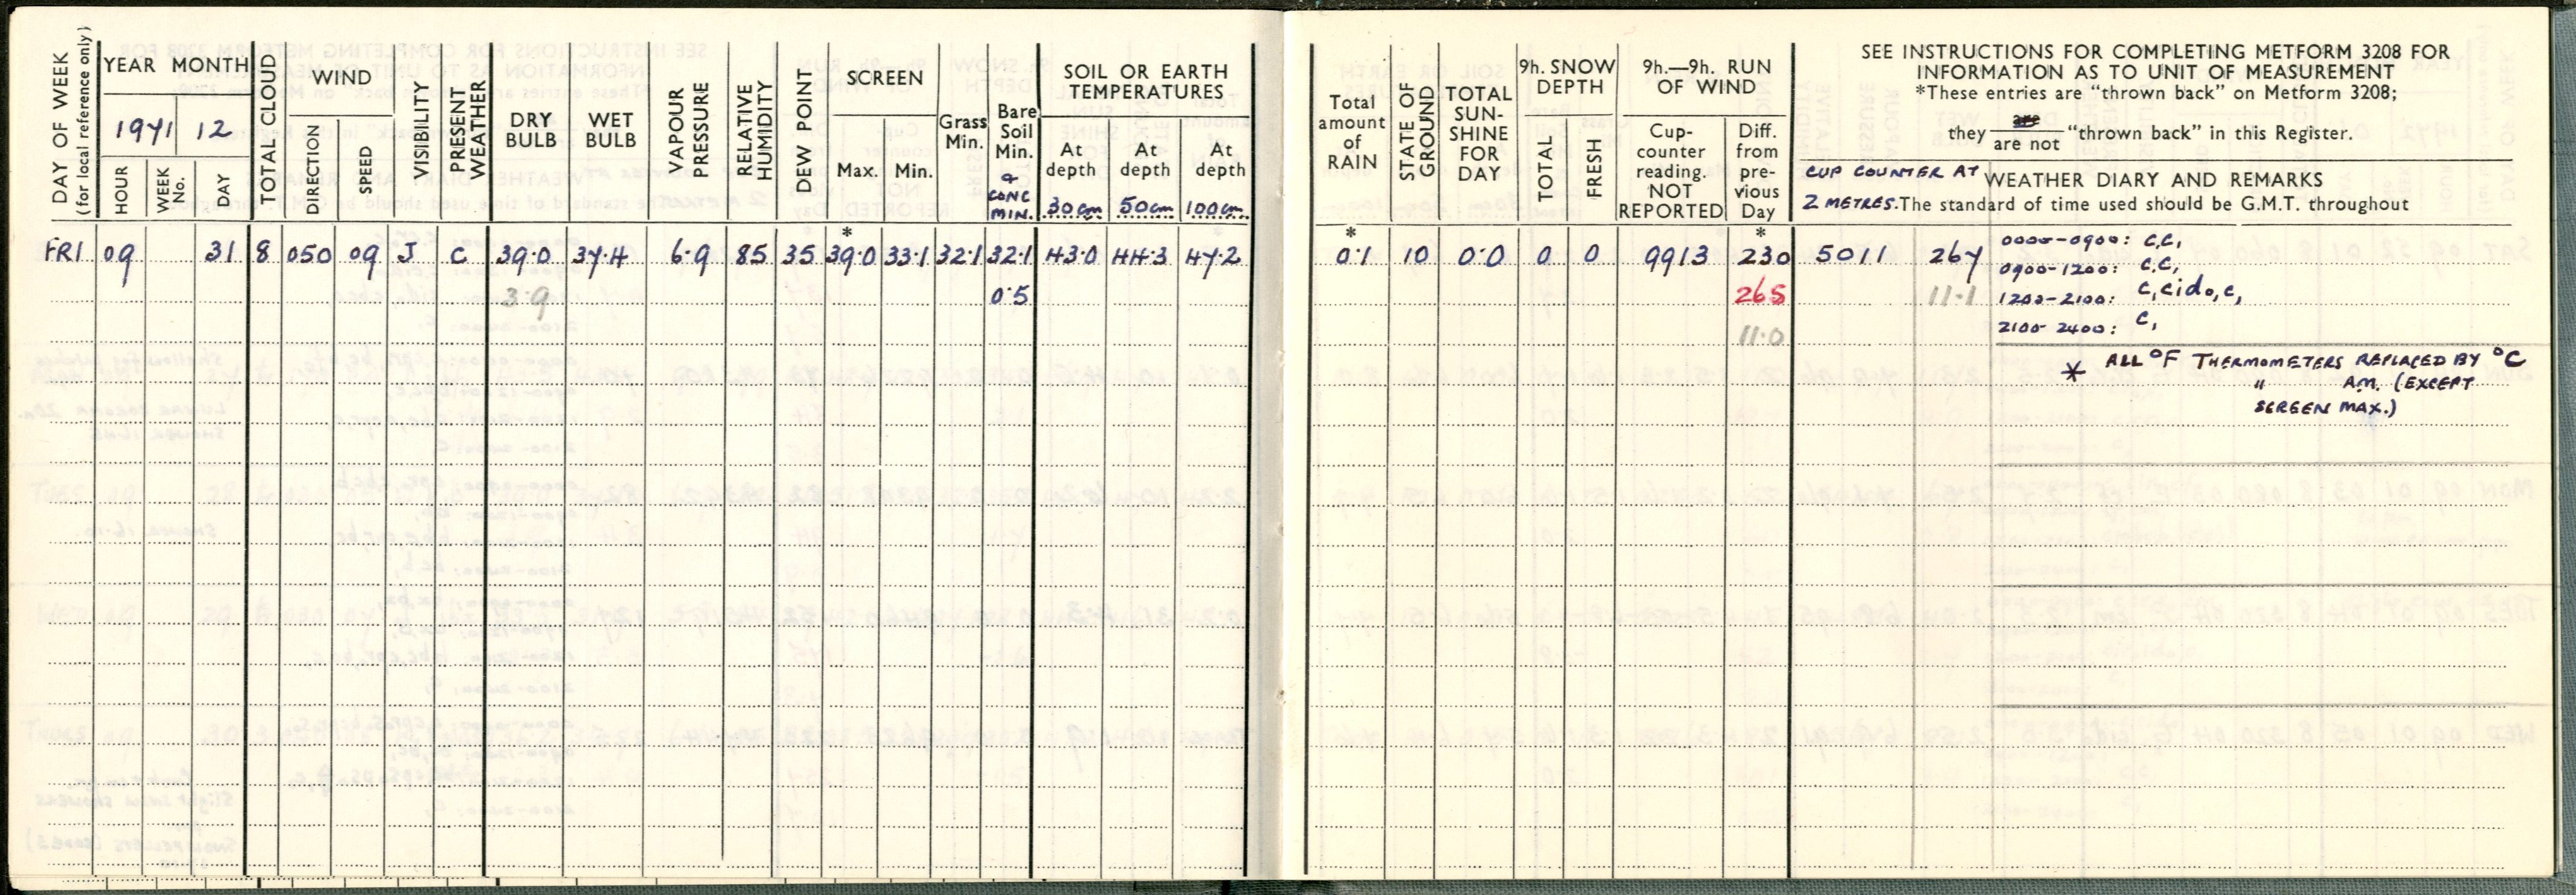 DAY OF WEEK
(for local reference only)
YEAR MONTH
1971 12
HOUR
WEEK No.
DAY
TOTAL CLOUD
WIND
DIRECTION
SPEED
VISIBILITY
PRESENT WEATHER
DRY BULB
WET BULB
VAPOUR PRESSURE
RELATIVE HUMIDITY
DEW POINT
SCREEN
Max. Min.
Grass Min.
Bare Soil Min.
& CONC MIN.
SOIL OR EARTH TEMPERATURES
At depth 30cm
At depth 50cm
At depth 100cm
Total amount of RAIN
STATE OF GROUND
TOTAL SUN-SHINE FOR DAY
9h. SNOW DEPTH
TOTAL
FRESH
9h.—9h. RUN OF WIND
Cup-counter reading. NOT REPORTED
Diff. from pre-vious Day
SEE INSTRUCTIONS FOR COMPLETING METFORM 3208 FOR
INFORMATION AS TO UNIT OF MEASUREMENT
*These entries are "thrown back" on Metform 3208;
they are / are not "thrown back" in this Register.
CUP COUNTER AT
2 METRES.
WEATHER DIARY AND REMARKS
The standard of time used should be G.M.T. throughout
FRI 09 31 8 050 09 J C 39.0 37.4 6.9 85 35 *39.0 33.1 32.1 32.1 43.0 44.3 47.2 *0.1 10 0.0 0 0 9913 *230 5011 267
3.9 0.5 265 11.1
11.0
0000-0900: c,c,
0900-1200: c,c,
1200-2100: c,cido,c,
2100-2400: c,
* ALL °F THERMOMETERS REPLACED BY °C
" A.M. (EXCEPT
SCREEN MAX.)